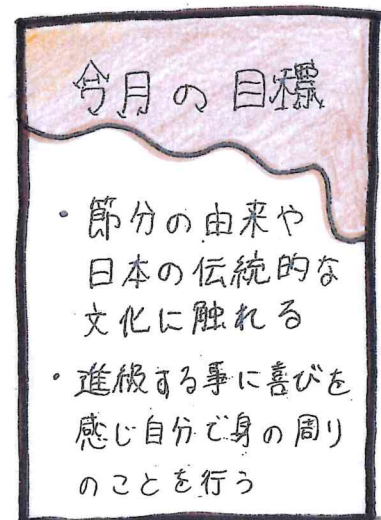 今月の目標
・節分の由来や
日本の伝統的な
文化に触れる
・進級する事に喜びを
感じ自分で身の周り
のことを行う